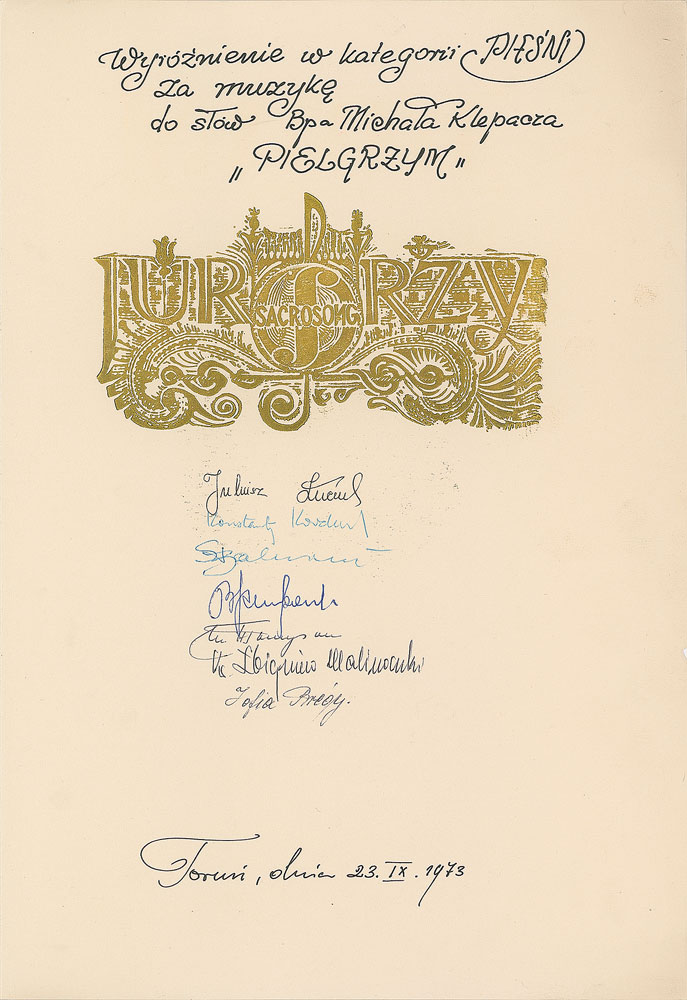 Wyróżnienie w kategorii PIEŚNI
za muzykę
do słów Bpa Michała Klepacza
„PIELGRZYM"
JURORZY
SACROSONG
Juliusz Łuciuk
Konstanty
Ks. Zbigniew Malinowski
Zofia Bregy.
Toruń, dnia 23. IX. 1973